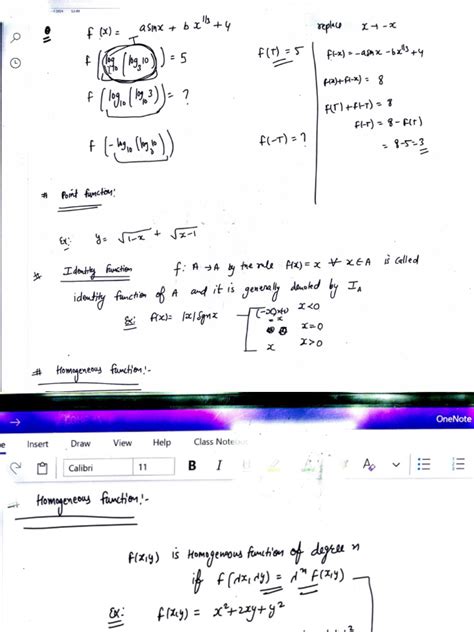 f(x) = a sinx + b x^1/3 + 4
f(log_10(log_3 10)) = 5
f(log_10(log_10 3)) = ?
f(-log_10(log_3 10))
f(T) = 5
f(-T) = ?
replace x → -x
f(-x) = -a sinx - bx^1/3 + 4
f(x) + f(-x) = 8
f(T) + f(-T) = 8
f(-T) = 8 - f(T)
= 8-5 = 3
# Point function:
Ex: y = √1-x + √x-1
Identity Function f: A → A by the rule f(x) = x ∀ x ∈ A is called
identity function of A and it is generally denoted by I_A
Ex: f(x) = |x| sgn x
x < 0
x = 0
x x > 0
# Homogeneous function:-
OneNote
Insert Draw View Help Class
Calibri 11 B I
Homogeneous function:-
f(x,y) is Homogeneous function of degree n
if f(λx, λy) = λ^n f(x,y)
Ex: f(x,y) = x² + 2xy + y²